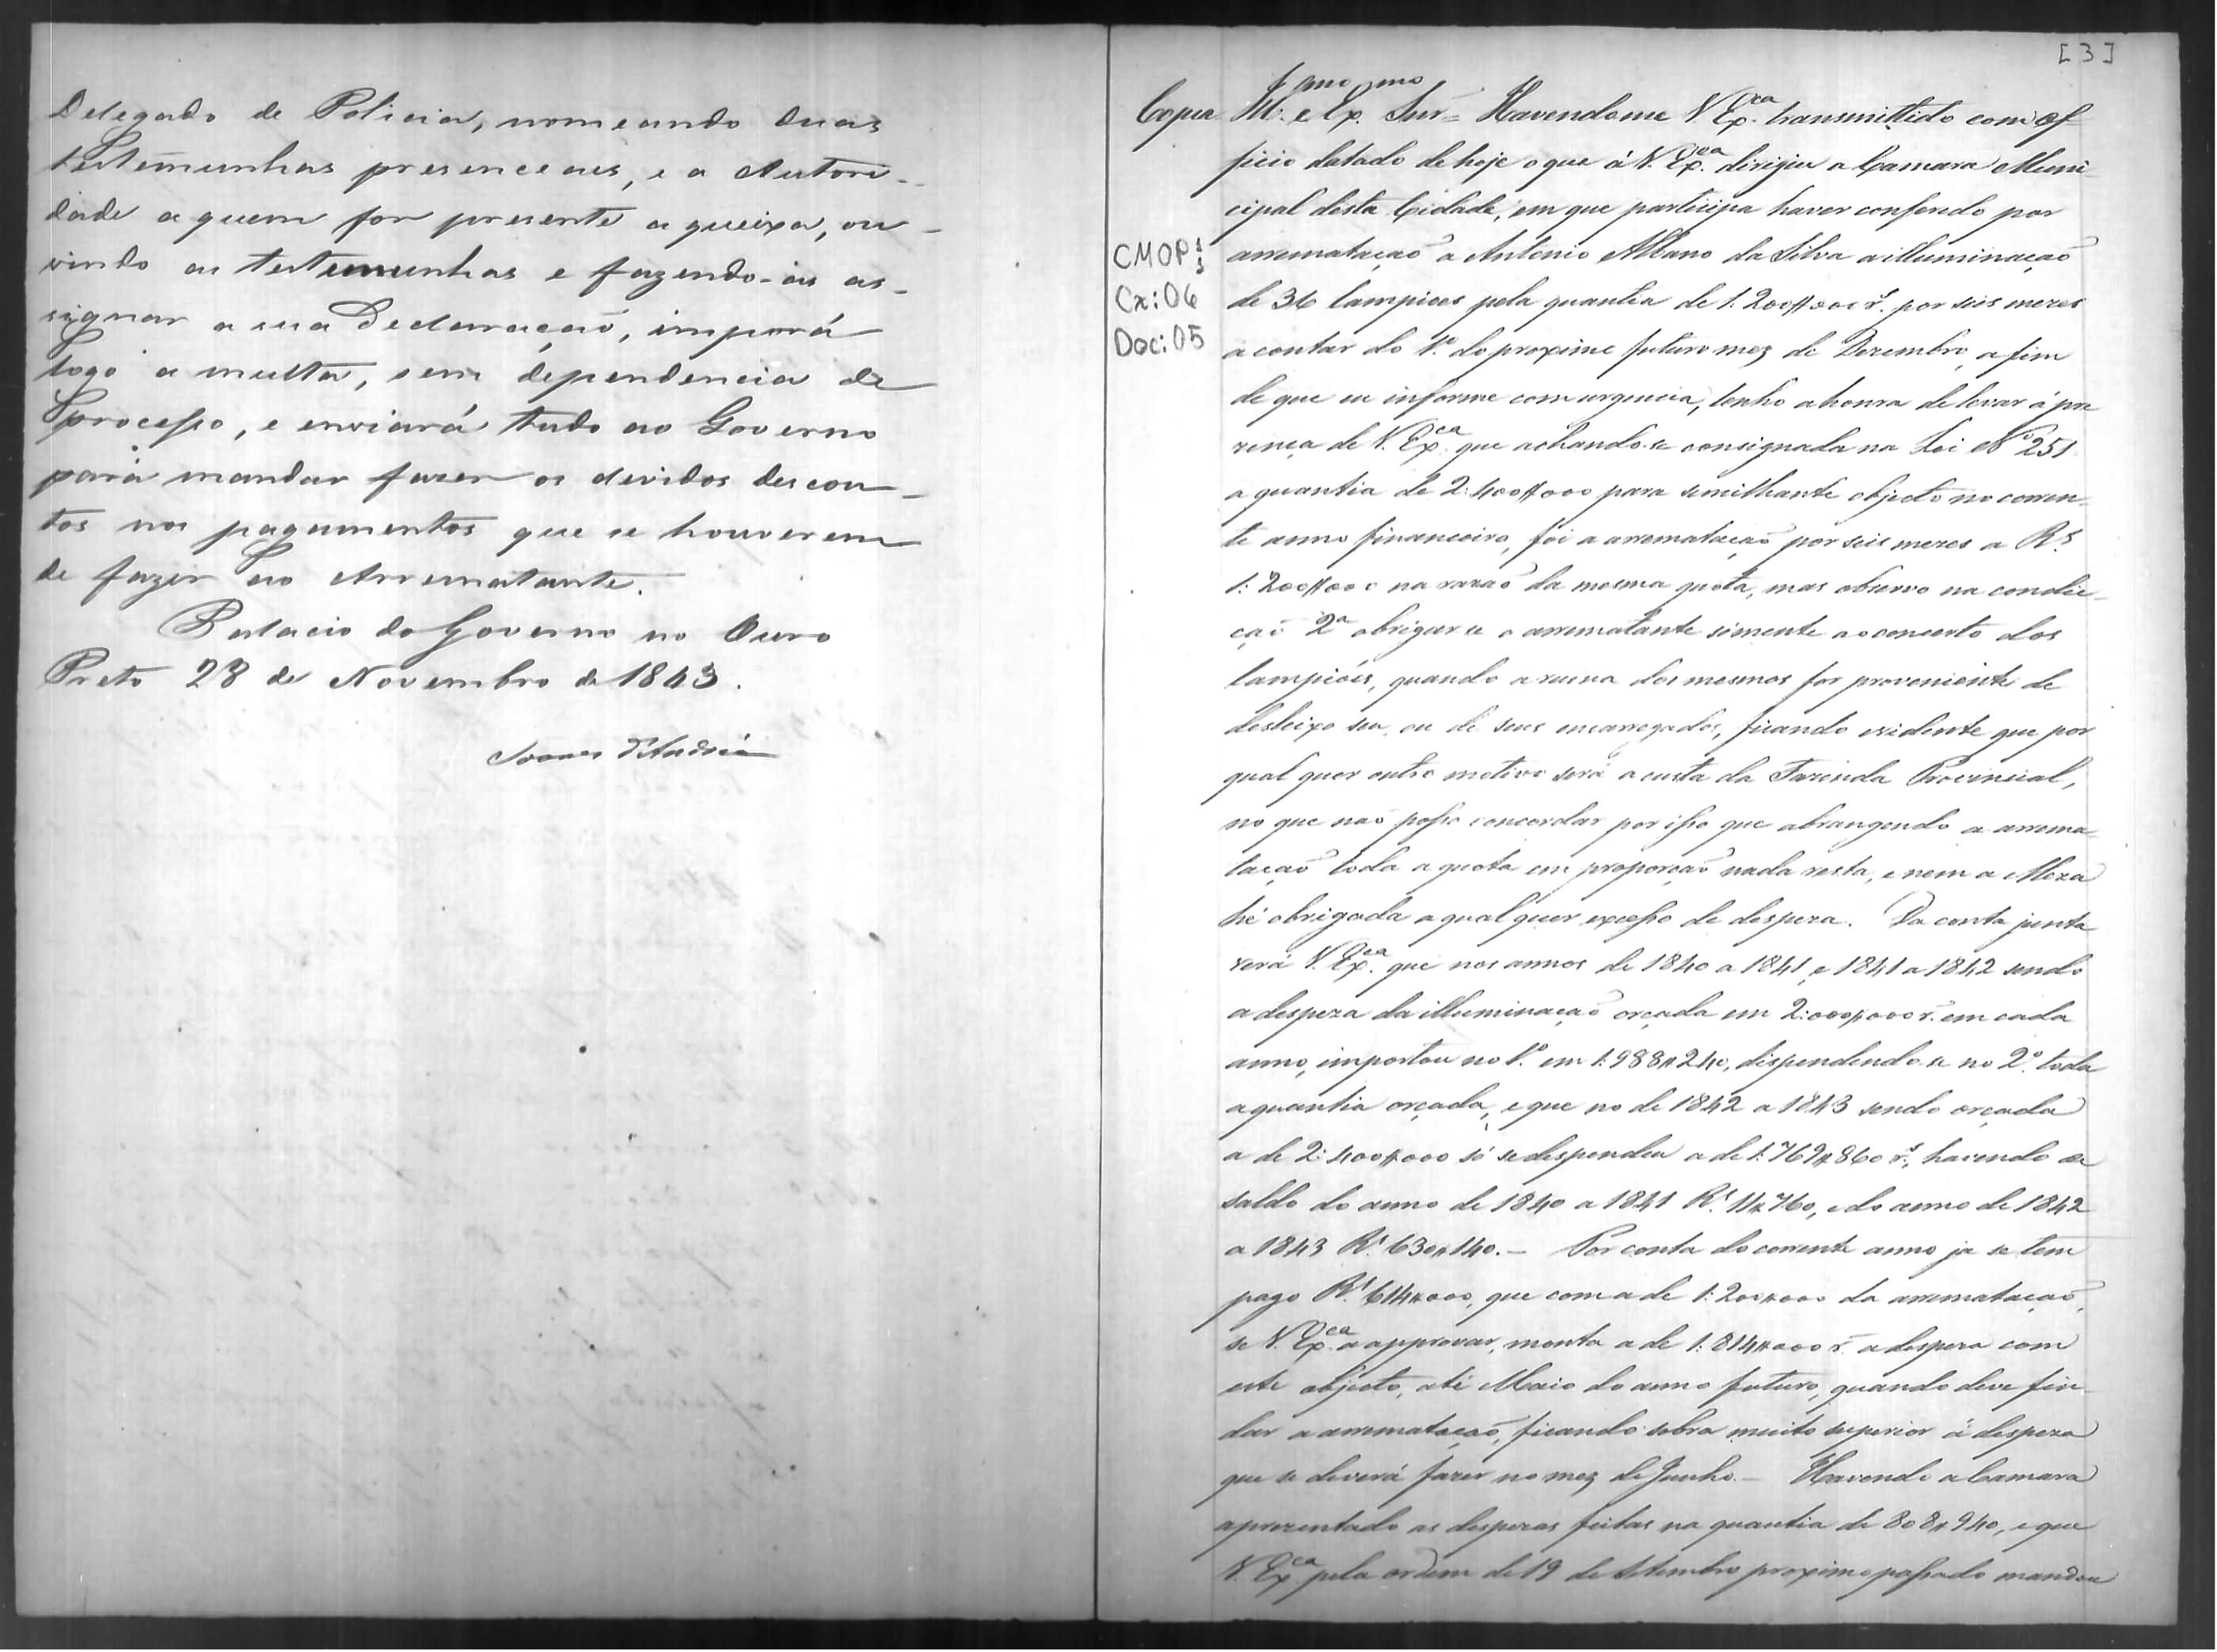 Delegado de Policia, nomeando duas
testemunhas presenceaes, e a Autori-
dade a quem for presente a queixa, ou-
vindo as testemunhas e fazendo-as as-
signar a sua Declaração, imporá
logo a multa, sem dependencia de
processo, e enviará tudo ao Governo
para mandar fazer os devidos descon-
tos nos pagamentos que se houverem
de fazer ao Arrematante.
Palacio do Governo no Ouro
Preto 28 de Novembro de 1843.
Soares d'Andréa
[3]
Copia Ill.mo e Ex.mo Snr = Havendome V. Ex.cia transmittido com of
ficio datado de hoje o que á V. Ex.ca dirigiu a Camara Muni
cipal desta Cidade, em que participa haver conferido por
CMOP:
Cx: 06
Doc: 05
arremataçaõ a Antonio Albano da Silva a illuminaçaõ
de 36 lampioes pela quantia de 1:200$000 r.s por seis mezes
a contar do 1.º do proximo futuro mez de Dezembro, a fim
de que eu informe com urgencia, tenho a honra de levar á pre
zença de V. Ex.ca que achando-se consignada na Lei Nº 251
a quantia de 2:400$000 para similhante objecto no corren-
te anno financeiro, foi a arremataçaõ por seis mezes a R.s
1:200$000 na razaõ da mesma quota, mas observo na condic-
çaõ 2ª obrigar-se o arrematante sómente ao concerto dos
lampiões, quando a ruina dos mesmos for proveniente de
desleixo seu, ou de seus encarregados, ficando evidente que por
qual quer outro motivo será a custa da Fazenda Provincial,
no que naõ posso concordar por isso que abrangendo a arrema-
taçaõ toda a quota em proporçaõ nada resta, e nem a Meza
hé obrigada a qual quer excesso de despeza. Da conta junta
verá V. Ex.ca que nos annos de 1840 a 1841, e 1841 a 1842 sendo
a despeza da illuminaçaõ orçada em 2:000$000 r. em cada
anno, importou no 1.º em 1:988$240, dispendendo-se no 2.º toda
a quantia orçada, e que no de 1842 a 1843 sendo orçada
a de 2:400$000 só se despendeu a de 1:769$860 r.s, havendo de
saldo do anno de 1840 a 1841 R.s 11$760, e do anno de 1842
a 1843 R.s 630$140. — Por conta do corrente anno ja se tem
pago R.s 614$000, que com a de 1:200$000 da arremataçaõ,
se V. Ex.ca a approvar, monta a de 1:814$000 r. a despeza com
este objecto, até Maio do anno futuro, quando deve fin-
dar a arremataçaõ, ficando sobra muito superior á despeza
que se deverá fazer no mez de Junho. — Havendo a Camara
aprezentado as despezas feitas na quantia de 808$940, e que
V. Ex.ca pela ordem de 19 de Setembro proximo passado mandou